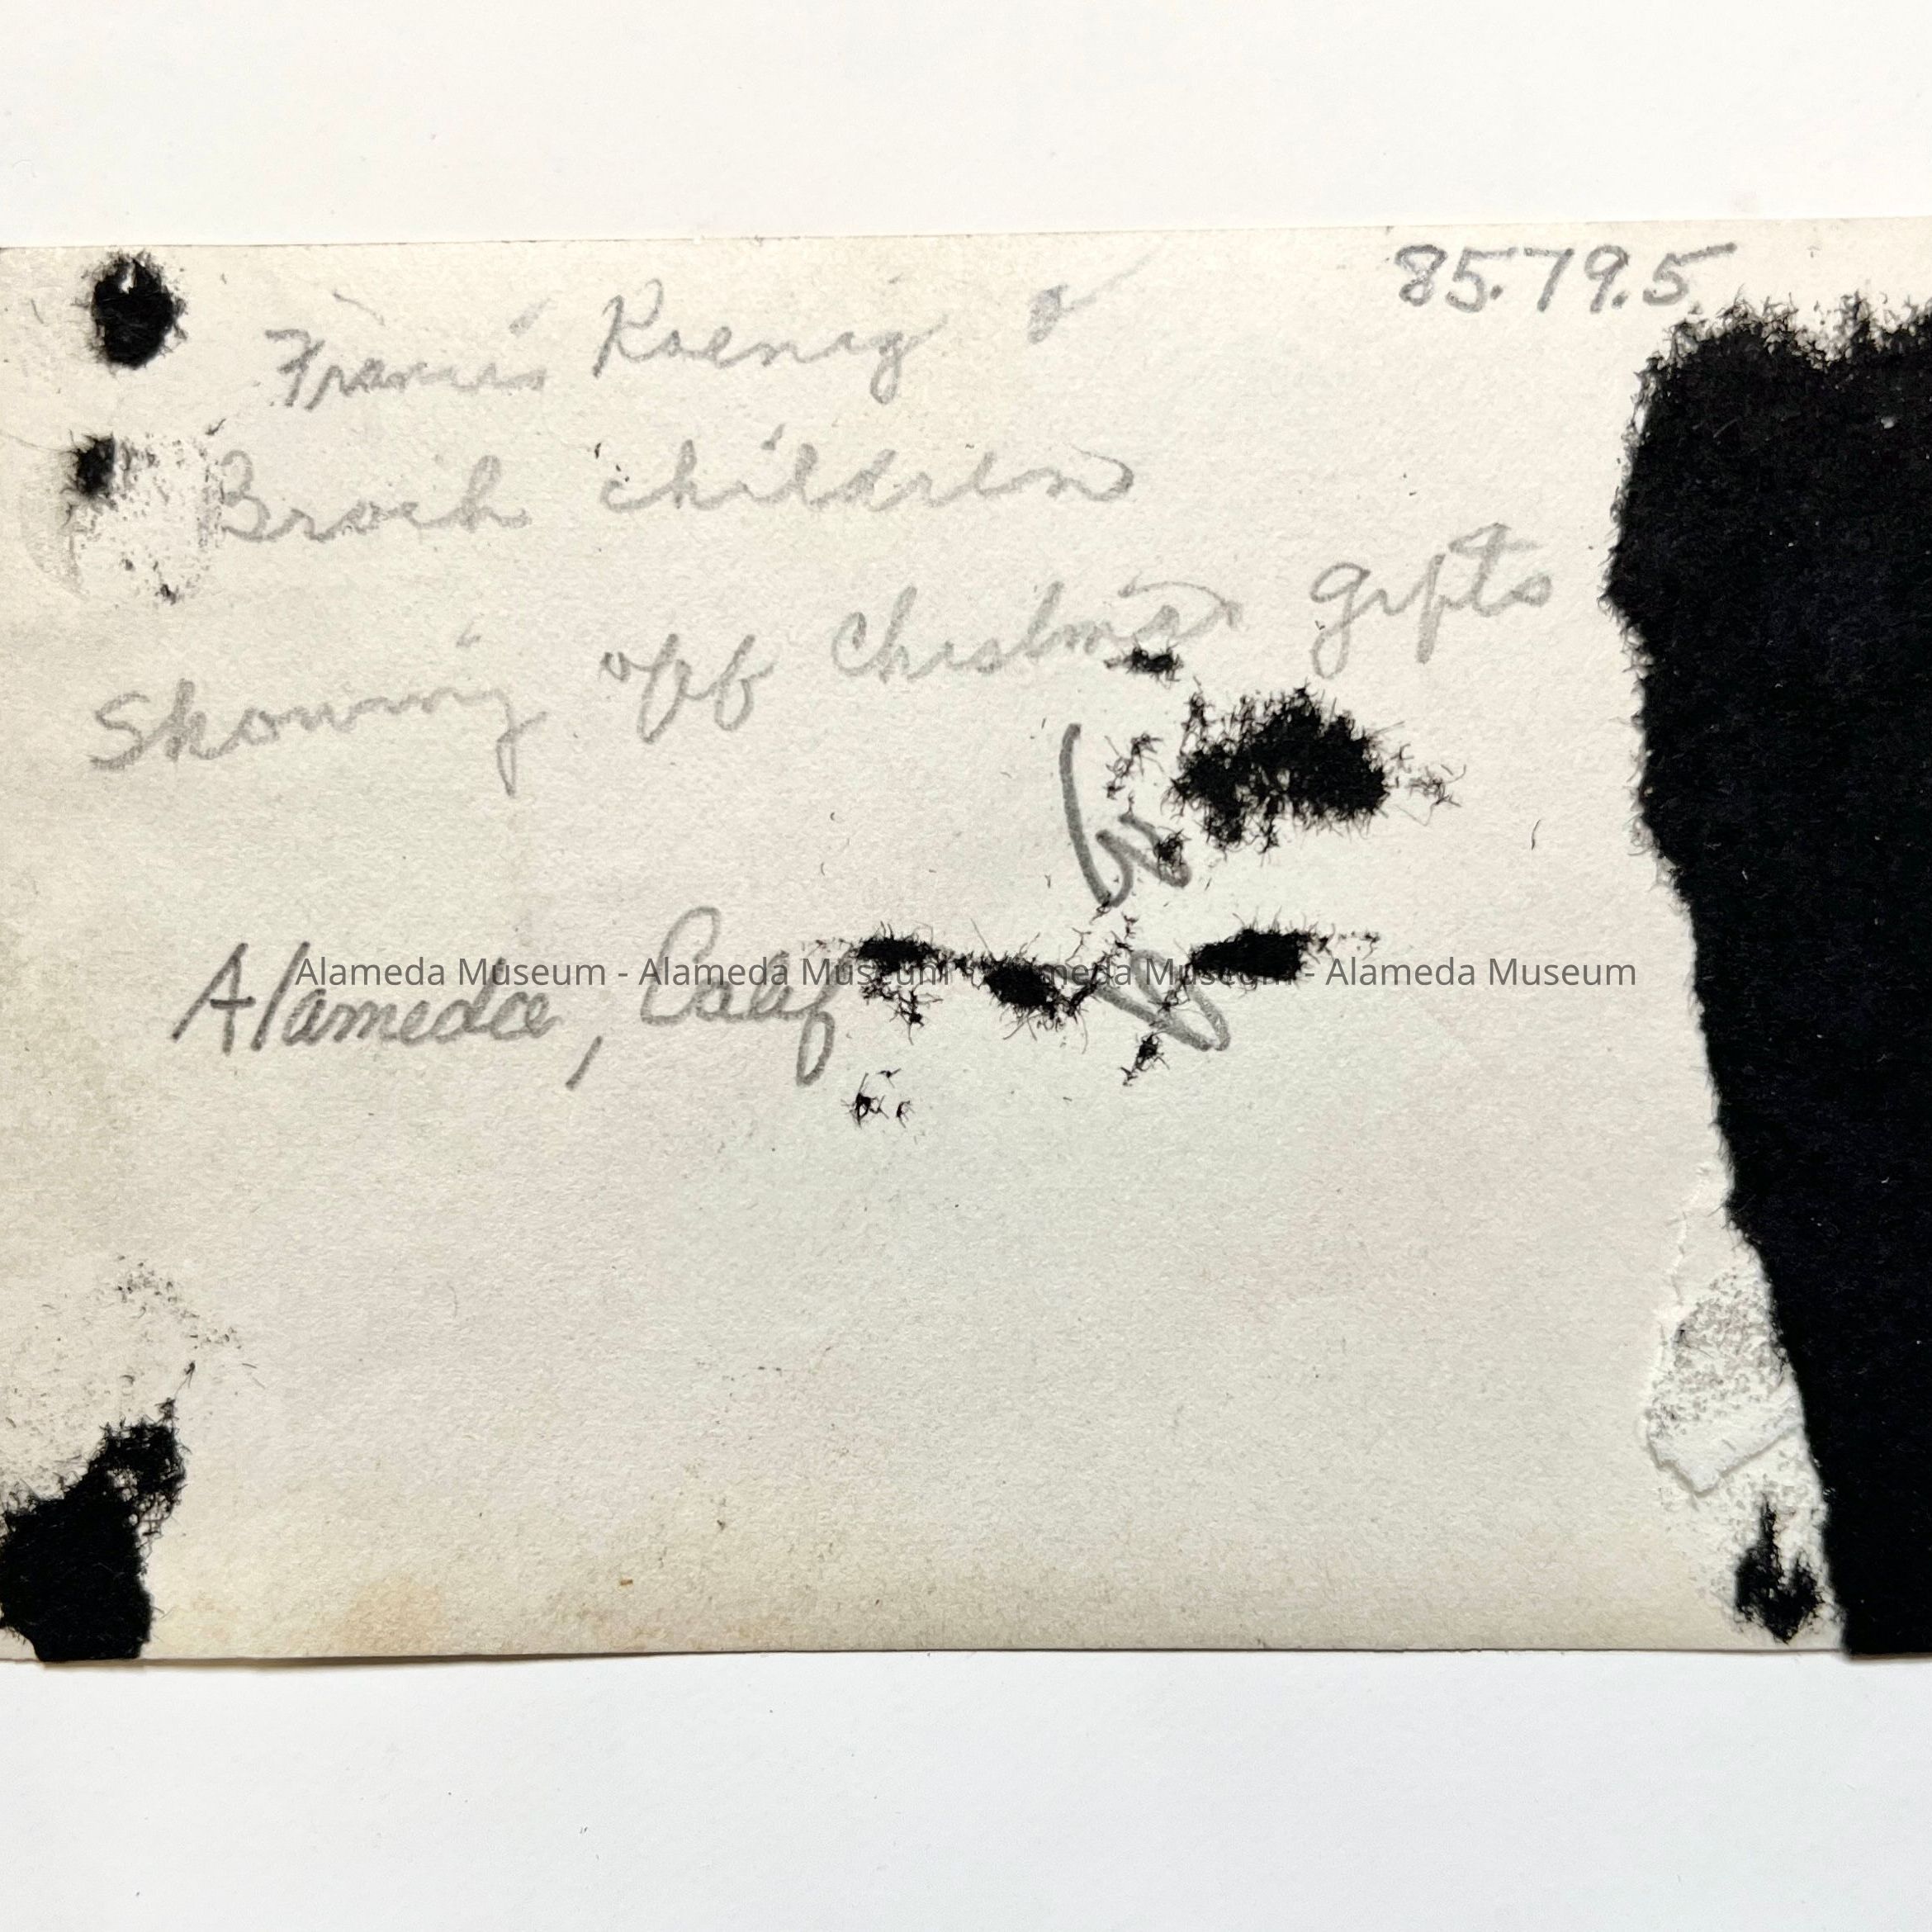 85.79.5
Francis Koenig &
Broch children
Showing off Chistmas gifts
Alameda, Calif
Alameda Museum - Alameda Museum - Alameda Museum - Alameda Museum